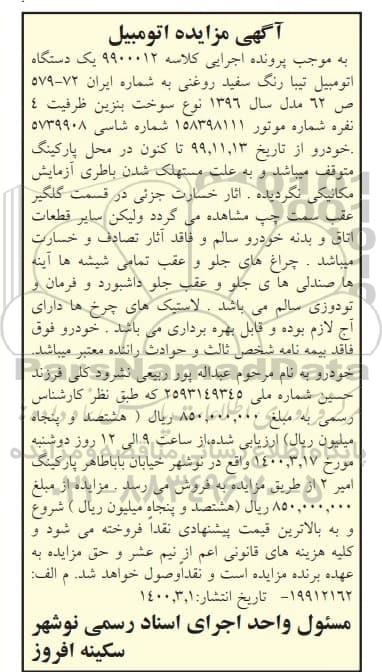 آگهی مزایده اتومبیل
به موجب پرونده اجرایی کلاسه ۹۹۰۰۰۱۲ یک دستگاه
اتومبیل تیبا رنگ سفید روغنی به شماره ایران ۷۲-۵۷۹
ص ۶۲ مدل سال ۱۳۹۶ نوع سوخت بنزین ظرفیت ۴
نفره شماره موتور ۱۵۸۳۹۸۱۱۱ شماره شاسی ۵۷۳۹۹۰۸
.خودرو از تاریخ ۹۹,۱۱,۱۳ تا کنون در محل پارکینگ
متوقف میباشد و به علت مستهلک شدن باطری آزمایش
مکانیکی نگردیده . اثار خسارت جزئی در قسمت گلگیر
عقب سمت چپ مشاهده می گردد ولیکن سایر قطعات
اتاق و بدنه خودرو سالم و فاقد آثار تصادف و خسارت
میباشد . چراغ های جلو و عقب تمامی شیشه ها آینه
ها صندلی ها ی جلو و عقب جلو داشبورد و فرمان و
تودوزی سالم می باشد . لاستیک های چرخ ها دارای
آج لازم بوده و قابل بهره برداری می باشد . خودرو فوق
فاقد بیمه نامه شخص ثالث و حوادث راننده معتبر میباشد.
خودرو به نام مرحوم عبداله پور ربیعی نشرود کلی فرزند
حسین شماره ملی ۲۵۹۳۱۴۹۳۴۵ که طبق نظر کارشناس
رسمی به مبلغ ۸۵۰,۰۰۰,۰۰۰ ریال ( هشتصد و پنجاه
میلیون ریال) ارزیابی شده،از ساعت ۹ الی ۱۲ روز دوشنبه
مورخ ۱۴۰۰,۳,۱۷ واقع در نوشهر خیابان باباطاهر پارکینگ
امیر ۲ از طریق مزایده به فروش می رسد . مزایده از مبلغ
۸۵۰,۰۰۰,۰۰۰ ریال (هشتصد و پنجاه میلیون ریال ) شروع
و به بالاترین قیمت پیشنهادی نقداً فروخته می شود و
کلیه هزینه های قانونی اعم از نیم عشر و حق مزایده به
عهده برنده مزایده است و نقداًوصول خواهد شد. م الف:
۱۹۹۱۲۱۶۲- تاریخ انتشار:۱۴۰۰,۳,۱
مسئول واحد اجرای اسناد رسمی نوشهر
سکینه افروز
پایگاه اطلاع رسانی مناقصه و مزایده